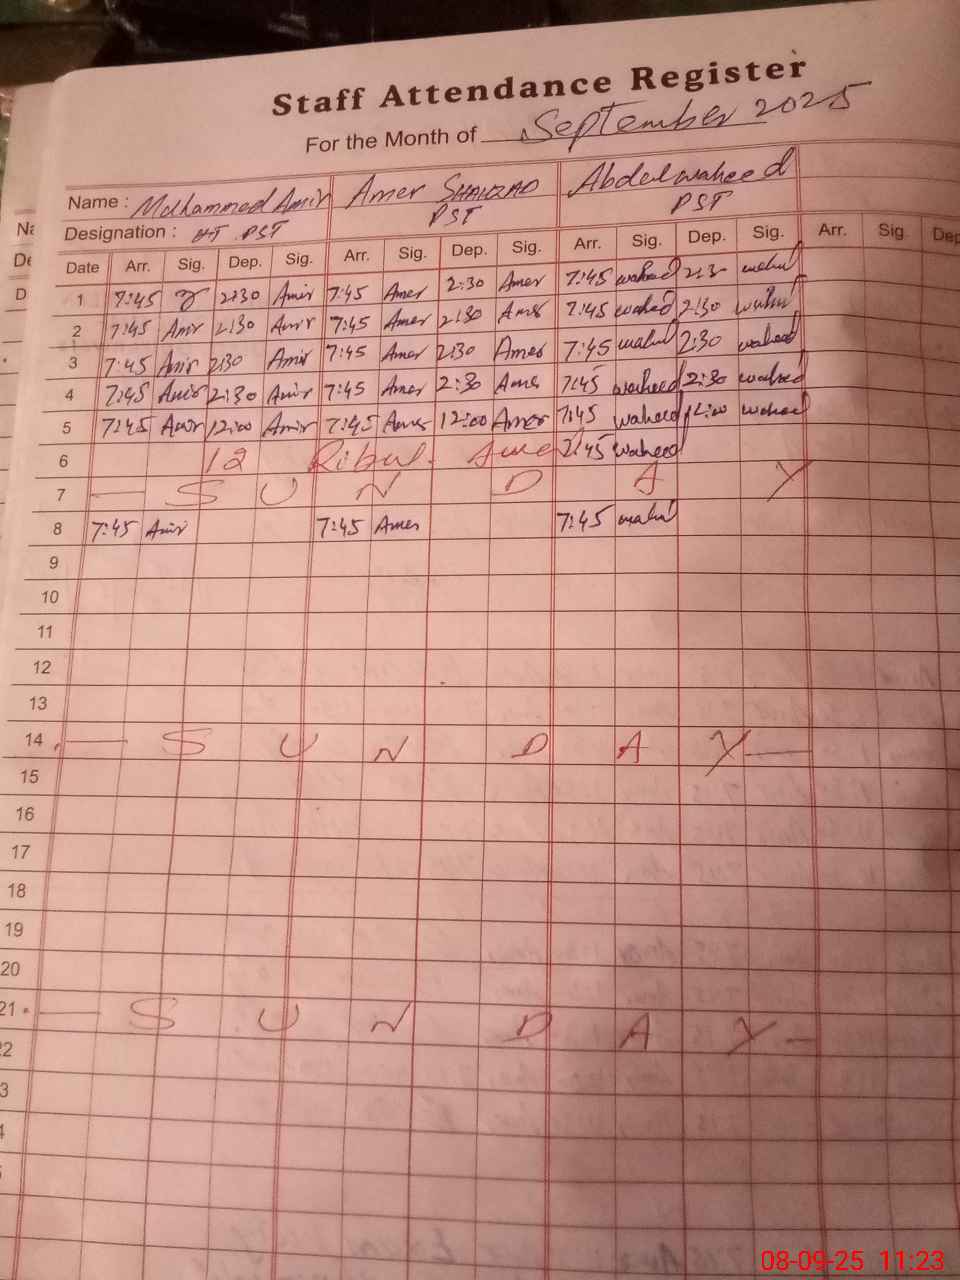 Staff Attendance Register
For the Month of September 2025
Name : Mohammed Amir Amer SHAHZAD Abdul waheed
Designation : HT PST PST PST
Date Arr. Sig. Dep. Sig. Arr. Sig. Dep. Sig. Arr. Sig. Dep. Sig. Arr. Sig. Dep
1 7:45 2:30 Amir 7:45 Amer 2:30 Amer 7:45 waheed 2:3 waheed
2 7:45 Amir 2:30 Amir 7:45 Amer 2:30 Amer 7:45 waheed 2:30 waheed
3 7:45 Amir 2:30 Amir 7:45 Amer 2:30 Amer 7:45 waheed 2:30 waheed
4 7:45 Amir 2:30 Amir 7:45 Amer 2:30 Amer 7:45 waheed 2:30 waheed
5 7:45 Amir 12:00 Amir 7:45 Amer 12:00 Amer 7:45 waheed 12:00 waheed
6 12 7:45 waheed
7 — S U N D A Y
8 7:45 Amir 7:45 Amer 7:45 waheed
9
10
11
12
13
14 — S U N D A Y —
15
16
17
18
19
20
21 — S U N D A Y —
22
3
4
08-09-25 11:23